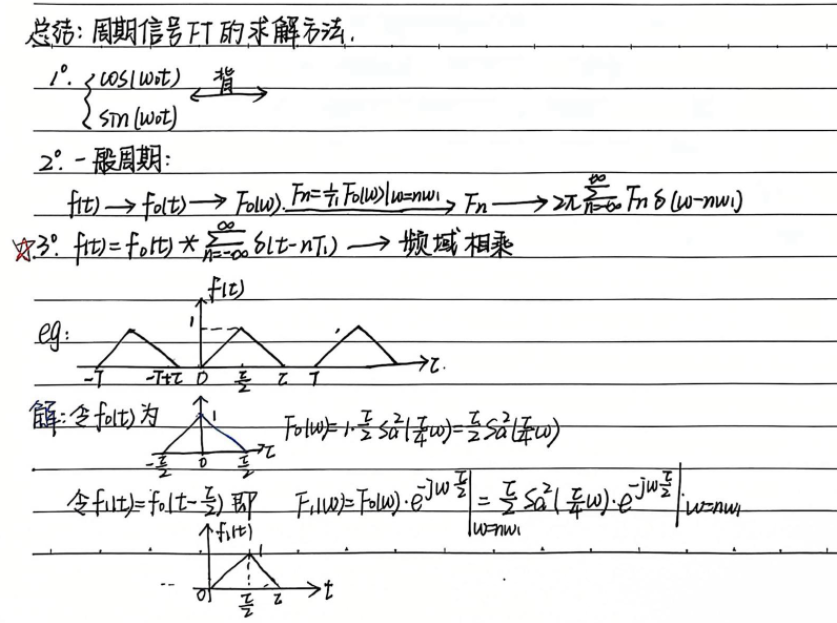 总结: 周期信号FT的求解方法.
1°. { cos(ω₀t) 背 ⟷
sin(ω₀t)
2°. 一般周期:
f(t) → f₀(t) → F₀(ω). Fn=1/T₁ F₀(ω)|ω=nω₁ → Fn → 2π ∑_{n=-∞}^{+∞} Fn δ(ω-nω₁)
☆3°. f(t)=f₀(t) * ∑_{n=-∞}^{∞} δ(t-nT₁) → 频域相乘
f(t)
eg: 1
-T -T+τ 0 τ/2 τ T τ.
解: 令f₀(t)为 1 F₀(ω)=1·τ/2 Sa²(τ/4 ω)=τ/2 Sa²(τ/4 ω)
-τ/2 0 τ/2 τ
令f₁(t)=f₀(t-τ/2) 即 F₁(ω)=F₀(ω)·e^{-jωτ/2}|ω=nω₁ = τ/2 Sa²(τ/4 ω)·e^{-jωτ/2}|ω=nω₁
f₁(t)
1
... 0 τ/2 τ t